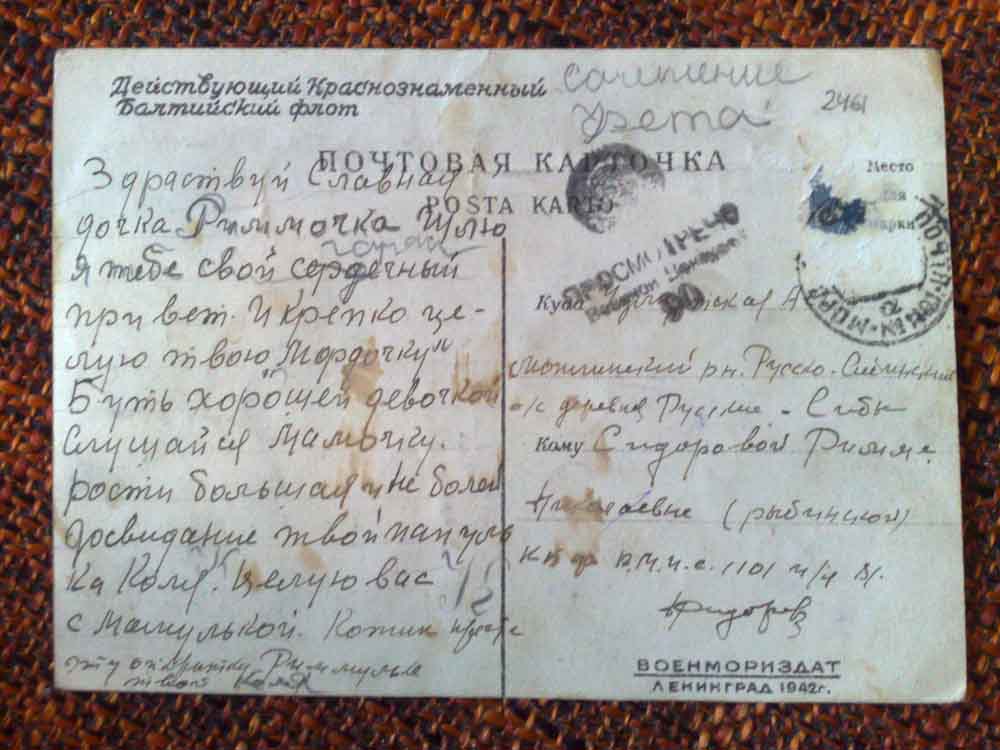 Действующий Краснознаменный
Балтийский флот
сочинение
2461
ПОЧТОВАЯ КАРТОЧКА
POŜTA KARTO
Место
для
марки
ПРОСМОТРЕНО
Военной Цензурой
90
Здраствуй Славная
дочка Риммочка Шлю
горяч
я тебе свой сердечный
привет. И крепко це-
лую твою Мордочку"
Буть хорошей девочкой
Слушайся Мамочку.
рости большая и не болей
досвидание твой папуль
ка Коля. Целую вас
с Мамулькой. Котик
эту открытку Риммульке
твой Коля
Куда
рн. Русско-
с/с деревня Русские - Сибы
кому Сидоровой Римме
Николаевне (рыбинской)
1101
Сидоров
ВОЕНМОРИЗДАТ
ЛЕНИНГРАД 1942г.